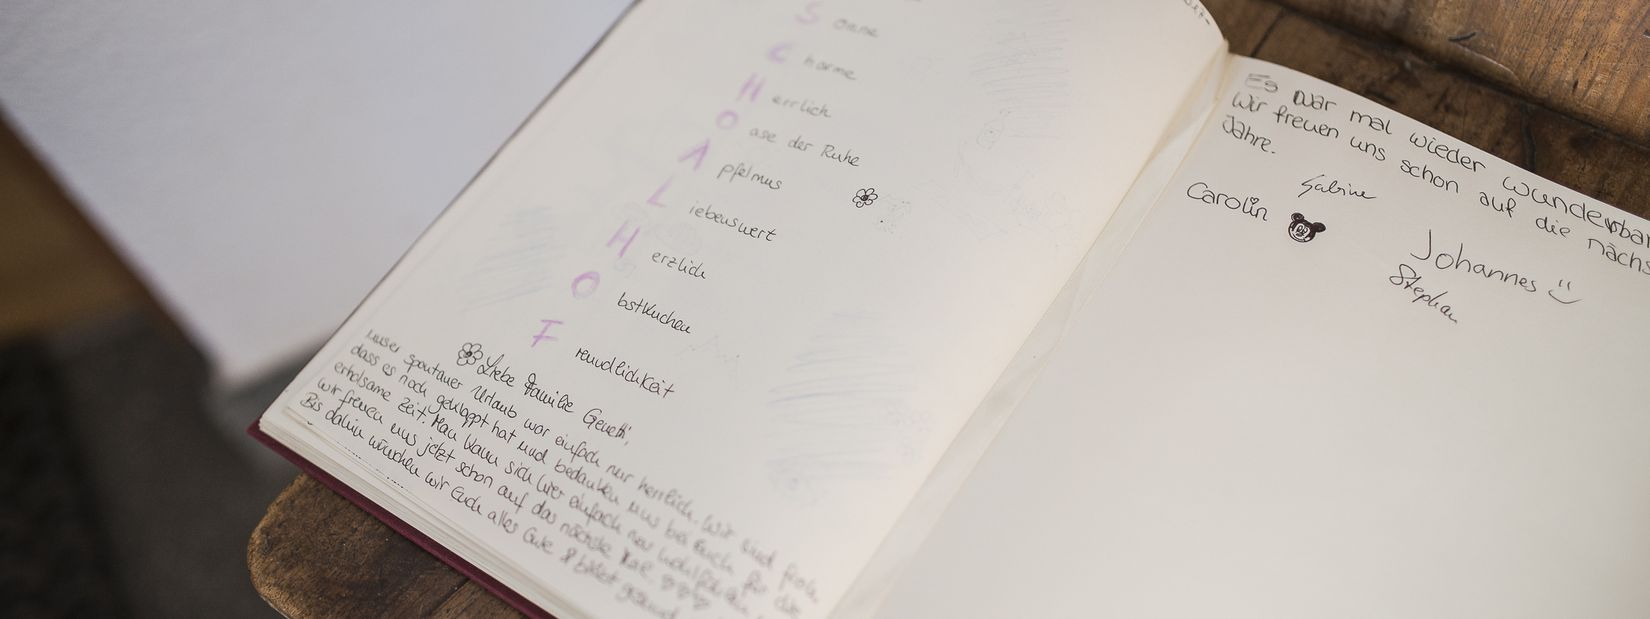 Sonne
Charme
Herrlich
Oase der Ruhe
Apfelmus
Liebenswert
Herzlich
Obstkuchen
Freundlichkeit
Liebe Familie
unser spontaner Urlaub war einfach nur herrlich. Wir sind froh,
dass es noch geklappt hat und bedanken uns bei Euch für die
erholsame Zeit. Man kann sich hier einfach nur wohlfühlen.
Wir freuen uns jetzt schon auf das nächste Mal
Bis dahin wünschen wir Euch alles Gute & bleibt gesund
Es war mal wieder wunderbar
Wir freuen uns schon auf die nächs
Jahre.
Sabine
Carolin
Johannes
Stephan